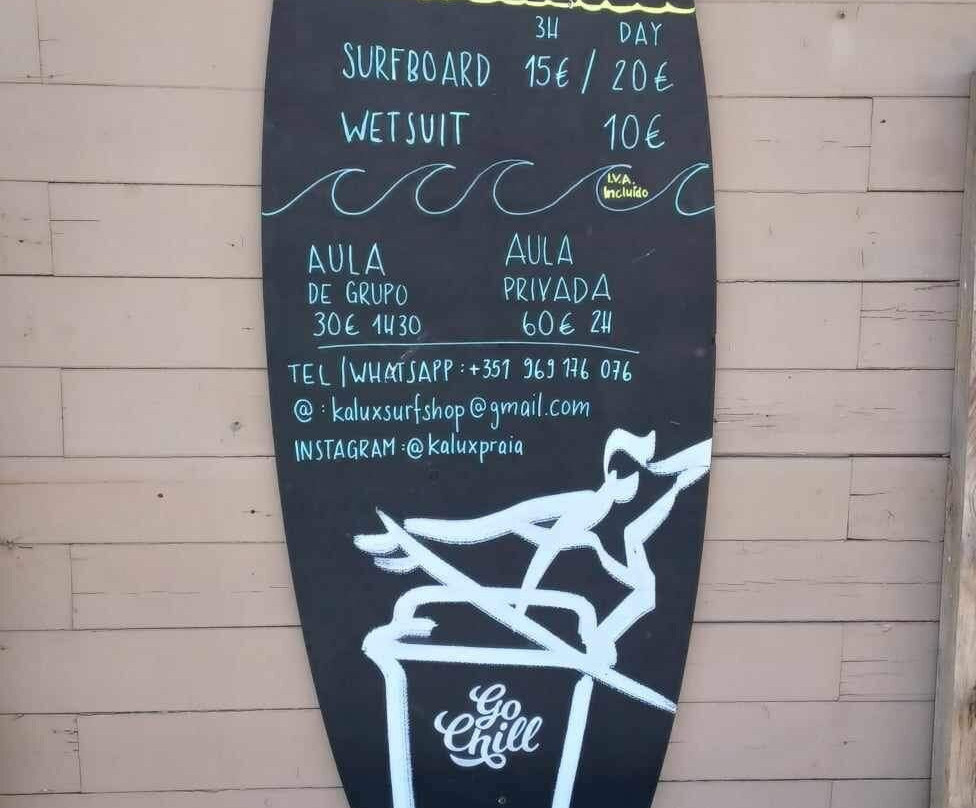 3H DAY
SURFBOARD 15€ / 20€
WETSUIT 10€
I.V.A.
Incluído
AULA
DE GRUPO
30€ 1H30
AULA
PRIVADA
60€ 2H
TEL / WHATSAPP : +351 969 176 076
@ : kaluxsurfshop@gmail.com
INSTAGRAM : @kaluxpraia
Go
Chill